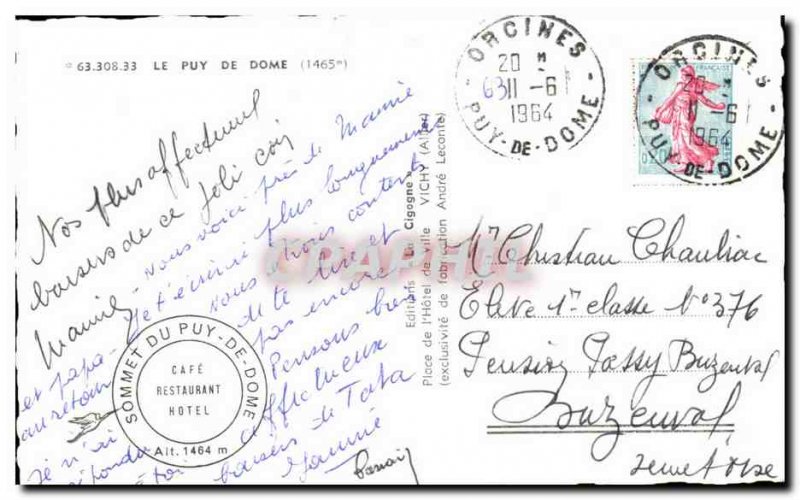 63.308.33 LE PUY DE DOME (1465m)
Nos plus affectueux
baisers de ce joli coin
Mamie
Nous voici près de Mamie
Je t'écrirai plus longuement
Nous
contents
de te lire et
et papa
pas encore
au retour
Pensons bien
Affectueux
Je n'ai
baisers de Tata
répondu
à toi
SOMMET DU PUY-DE-DOME
CAFÉ
RESTAURANT
HOTEL
Alt. 1464 m
Editions "La Cigogne"
Place de l'Hôtel de ville VICHY (Allier)
(exclusivité de fabrication André Leconte)
CPAPHIL
ORCINES
20 H
11 -6
1964
PUY-DE-DOME
ORCINES
20 H
11 -6
1964
PUY-DE-DOME
FRANÇAISE
0,20
Mr Christian Chauliac
Elève 1re classe N° 376
Pension Passy Buzenval
Buzenval
Seine et Oise